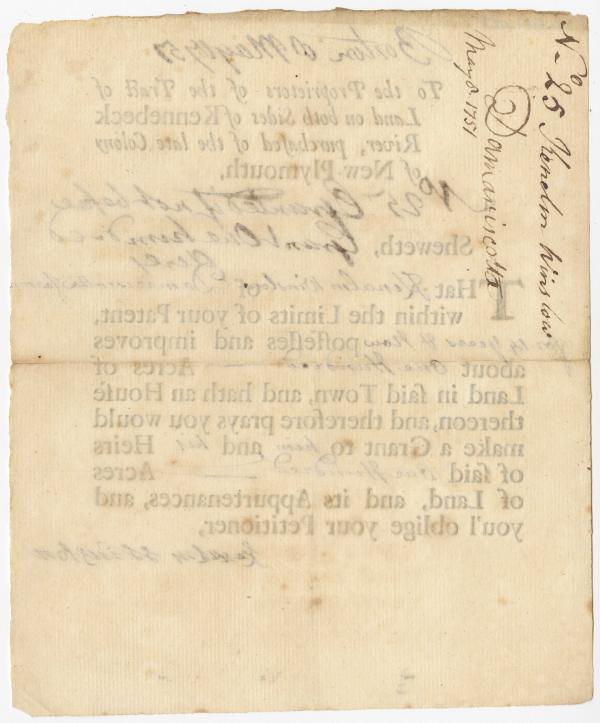 No 25 Kenelm Winslow
Damariscotta
May 8. 1751
To the Proprietors of the Tract of
Land on both Sides of Kennebeck
River, purchased of the late Colony
of New-Plymouth,
No 25 Granted if not before
Grant One hundred
Acres
Sheweth,
THat Kenelm Winslow of
within the Limits of your Patent,
possesses and improves
about One Hundred Acres of
Land in said Town, and hath an House
thereon, and therefore prays you would
make a Grant to him and his Heirs
of said One Hundred Acres
of Land, and its Appurtenances, and
you'l oblige your Petitioner,